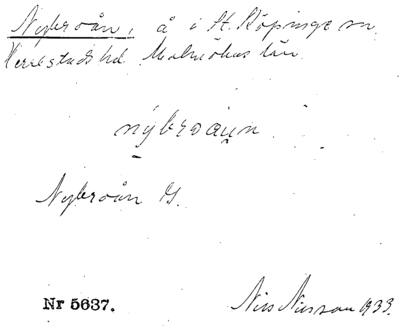 Nybroån, å i St. Köpinge sn.
Herrestads hd. Malmöhus län
nýbroaun
Nybroån G.
Nr 5637.
Nils Nilsson 1933.